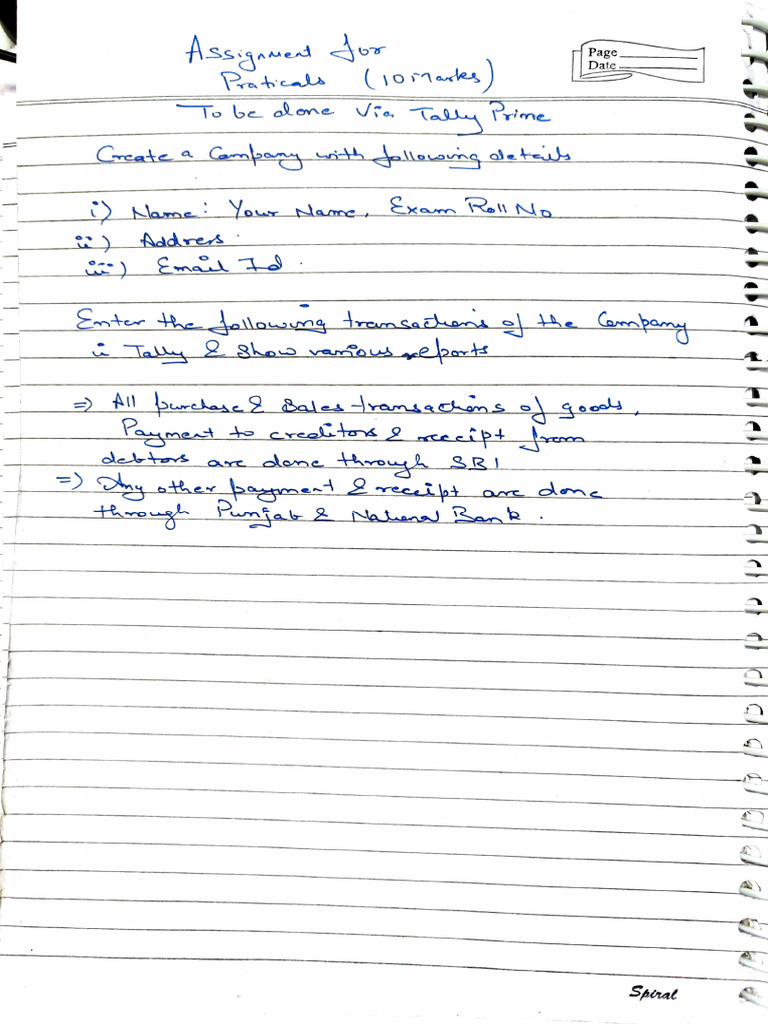 Assignment for
Page
Date
Praticals (10 Marks)
To be done Via Tally Prime
Create a Company with following details
i) Name: Your Name, Exam Roll No
ii) Address.
iii) Email Id.
Enter the following transactions of the Company
i Tally & show various reports
⇒ All purchase & Sales transactions of goods,
Payment to creditors & receipt from
debtors are done through SBI
⇒) Any other payment & receipt are done
through Punjab & National Bank.
Spiral